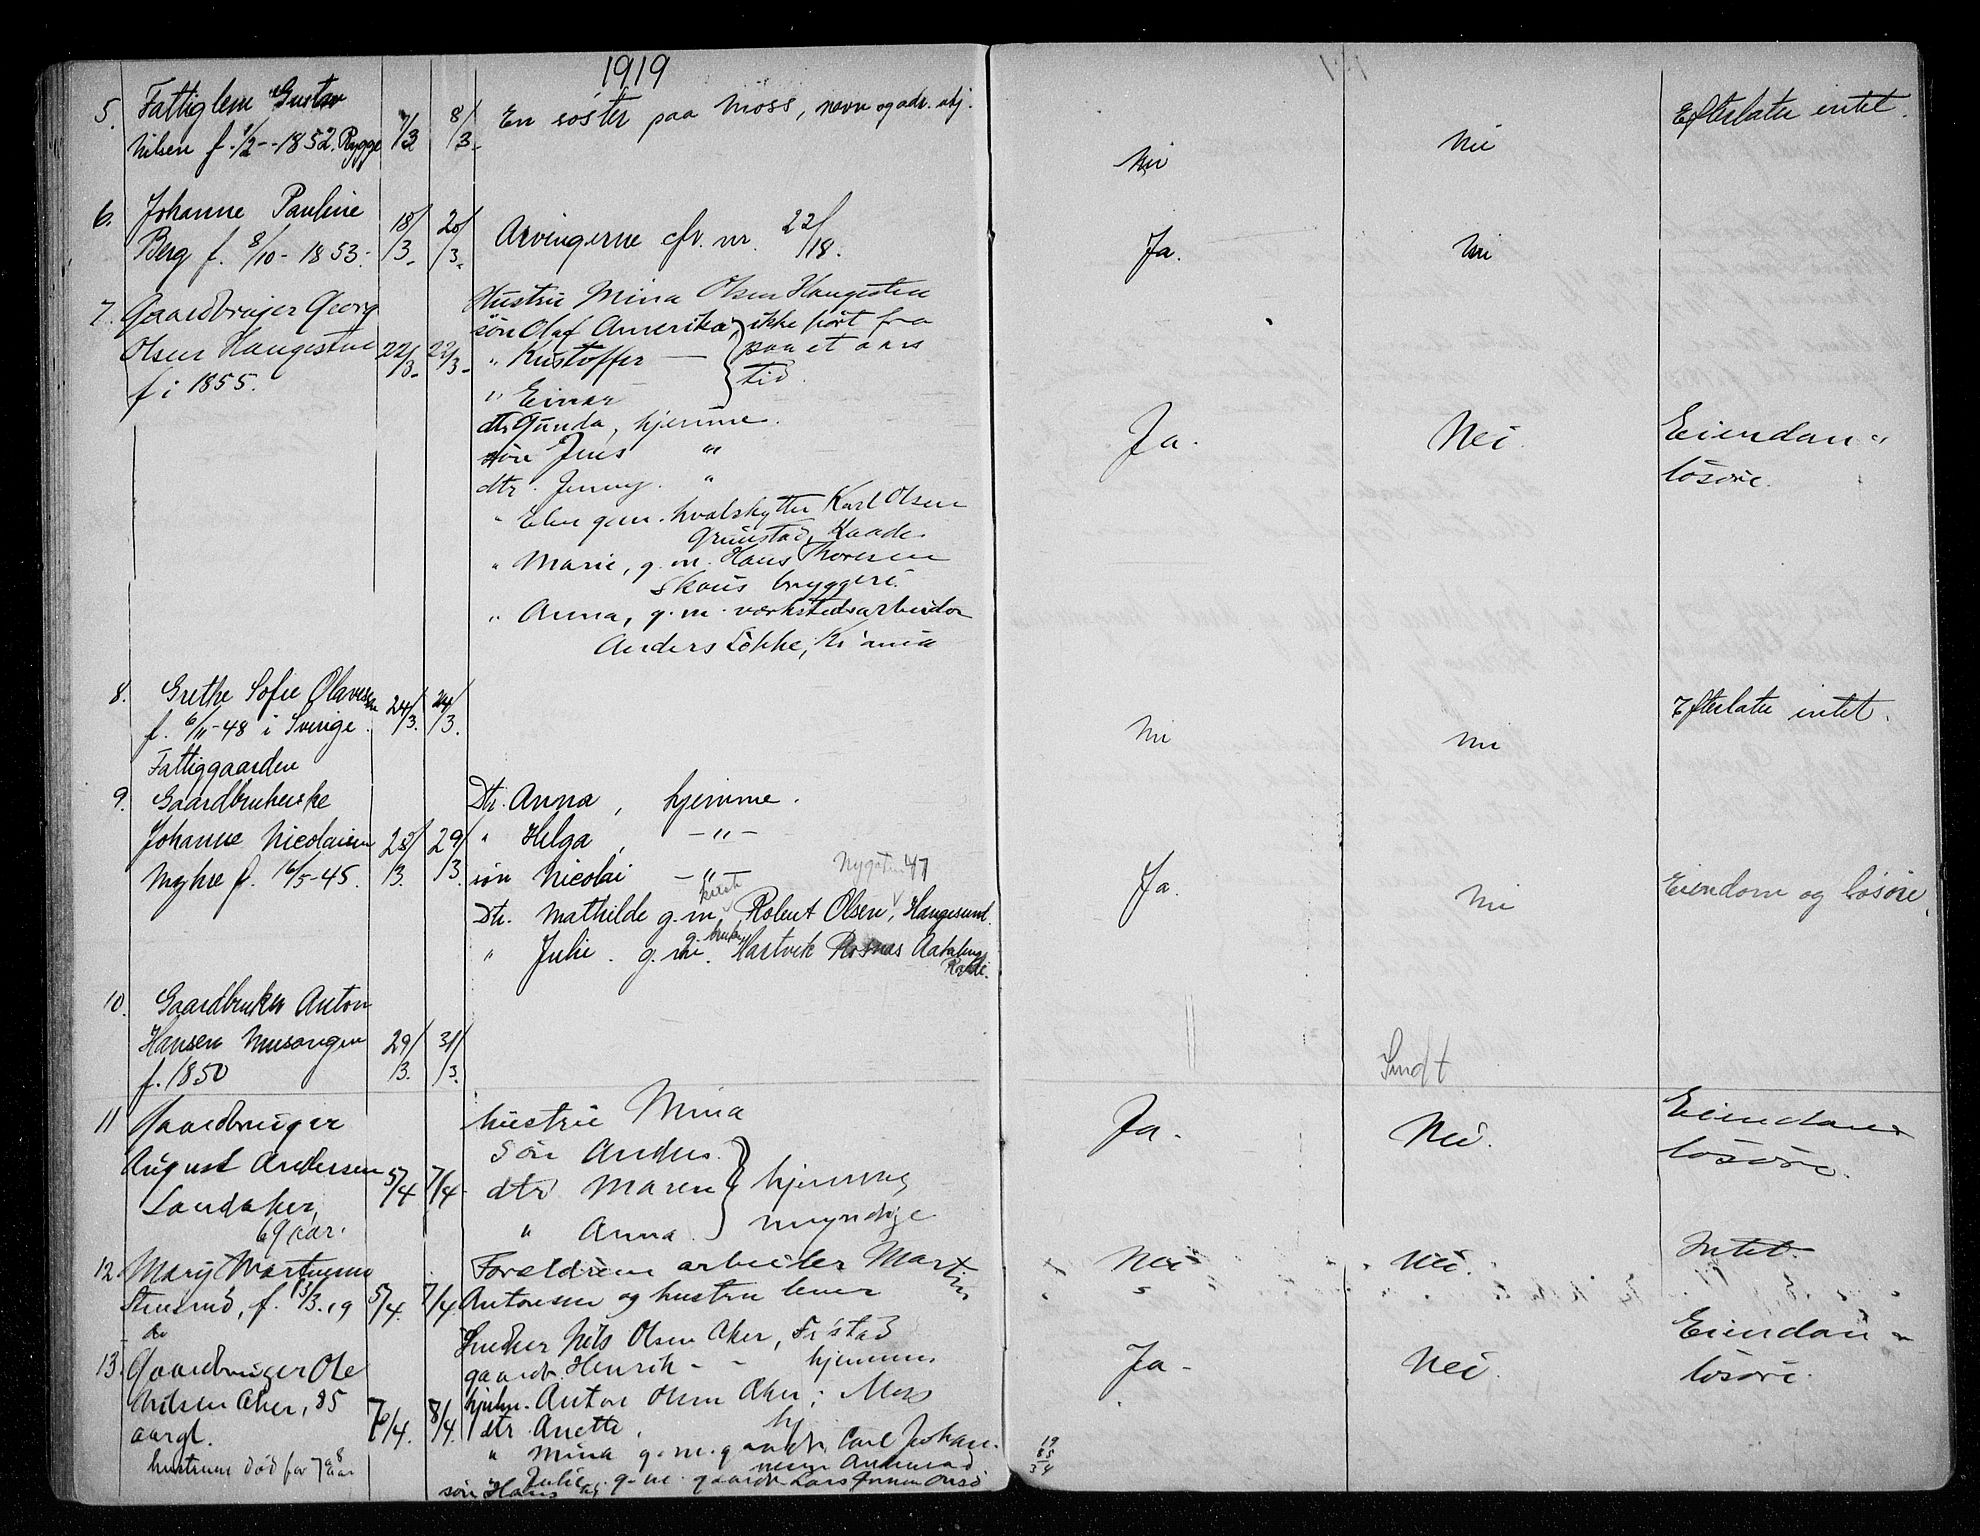 1919
5. Fattiglem Gustav
Nilsen f. 1/2 - 1852. Rygge 7/3 8/3.
En søster paa Moss, navn og adr. ubj.
Nei Nei Efterlater intet.
6. Johanne Pauline
Berg f. 8/10 - 1853. 18/3. 20/3.
Arvingerne cfr. nr. 22/18.
Ja. Nei
7. Gaardbruger Georg
Olsen Haugesten 22/3. 22/3.
f i 1855.
Hustru Mina Olsen Haugesten
søn Olaf Amerika } ikke hørt fra
" Kristoffer — } paa et aars
" Einar } tid.
dtr Gunda, hjemme.
søn Jens "
dtr. Jenny. "
" Elen gem. hvalskytter Karl Olsen
Grimstad, Raade
" Marie, g. m. Hans Thoresen
Skous bryggeri.
" Anna, g. m. værkstedsarbeider
Anders Løkke, Kr ania
Ja. Nei. Eiendom "
løsøre.
8. Grethe Sofie Olavesen 24/3. 24/3.
f. 6/11-48 i Sverige.
Fattiggaarden
Nei Nei Efterlater intet.
9. Gaardbrukerske
Johanne Nicolaisen 28/3. 29/3.
Myhre f. 16/5-45.
Dtr. Anna, hjemme.
" Helga, — " —
søn Nicolai — " — Nygaten 47
Dtr. Mathilde g. m. Robert Olsen, Haugesund.
" Julie. g. m. gbruker Hartvik Rosnæs
Raade.
Ja. Nei Eiendom og løsøre.
10. Gaardbruker Anton
Hansen 29/3. 31/3.
f. 1850
Sendt
11 Gaardbruger
August Andersen 5/4 7/4.
Landaker,
69 aar.
hustru Mina
Søn Anders. }
dtr Maren } hjemme
" Anna. } myndige
Ja. Nei. Eiendom
løsøre.
12. Mary
Stensrud, f. 13/3.19 5/4. 7/4
Forældrene arbeider Martin
Antonsen og hustru lever
Nei Nei. Intet.
13. Gaardbruger Ole
Nilsen Aker, 85 7/4. 8/4.
aargl.
hustruen død for 7 a 8 aar
Snedker Nils Olsen Aker, Fr stad
gaardb. Henrik - - hjemme
Anton Olsen Aker, Moss
dtr Anette, hj
" Mina g. m. gaardb. Carl Johan-
nesen
Julie. g. m. gaardb. Lars
søn Hans
Ja - Nei. Eiendom
løsøre.
19
85
34